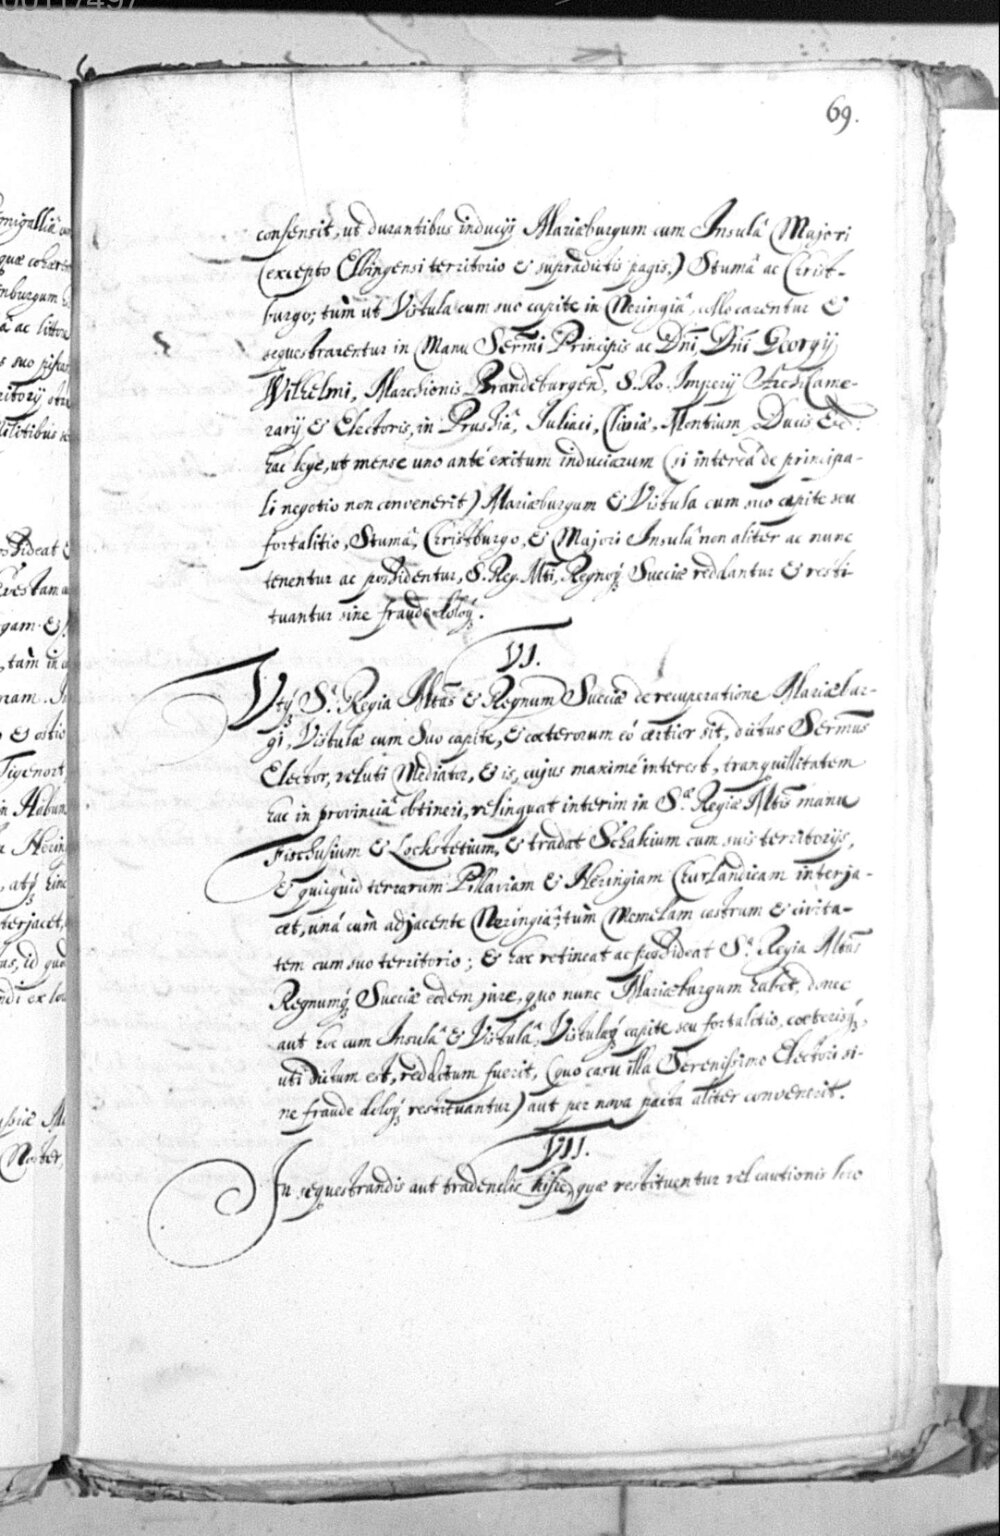 69.
consensit, ut durantibus inducijs Mariæburgum cum Insulâ Majori
(excepto Elbingensi territorio & supradictis pagis,) Stumâ ac Christ-
burgo; tùm ut Vistula cum suo capite in Neringiâ, collocarentur &
sequestrarentur in Manu Sermi Principis ac Dni, Dni Georgij
Wilhelmi, Marchionis Brandeburgen, S. Ro. Imperij Archicame-
rarij & Electoris, in Prussiâ, Juliaci, Cliviæ, Montium Ducis &c.
hac lege, ut mense uno ante exitum induciarum (si intereâ de principa-
li negotio non convenerit) Mariæburgum & Vistula cum suo capite seu
fortalitio, Stumâ, Christburgo, & Majori Insulâ non aliter ac nunc
tenentur ac possidentur, S. Reg. Mti, Regnoq; Sueciæ reddantur & resti-
tuantur sine fraude doloq;.
VI.
Utq; Sa. Regia Mtas & Regnum Sueciæ de recuperatione Mariæbur-
gi, Vistulæ cum suo capite, & cæterorum eò certior sit, dictus Sermus
Elector, veluti Mediator, & is, cujus maximè interest, tranquillitatem
hac in provinciâ obtineri, relinquat interim in Sæ. Regiæ Mtis manu
Fischusium & Lockstetium, & tradat Schakium cum suis territorijs,
& quicquid terrarum Pillaviam & Neringiam Churlandicam interja-
cet, unà cum adjacente Neringiâ; tùm Memelam castrum & civita-
tem cum suo territorio; & hæc retineat ac possideat Sa. Regia Mtas
Regnumq; Sueciæ eodem jure, quo nunc Mariæburgum habet, donec
aut hoc cum Insulâ & Vistulâ, Vistulæq; capite seu fortalitio, cæterisq;,
uti dictum est, redditum fuerit, (quo casu illa Serenissimo Electori si-
ne fraude doloq; restituantur) aut per nova pacta aliter convenerit.
VII.
In sequestrandis aut tradendis hisce, quæ restituentur vel cautionis loco